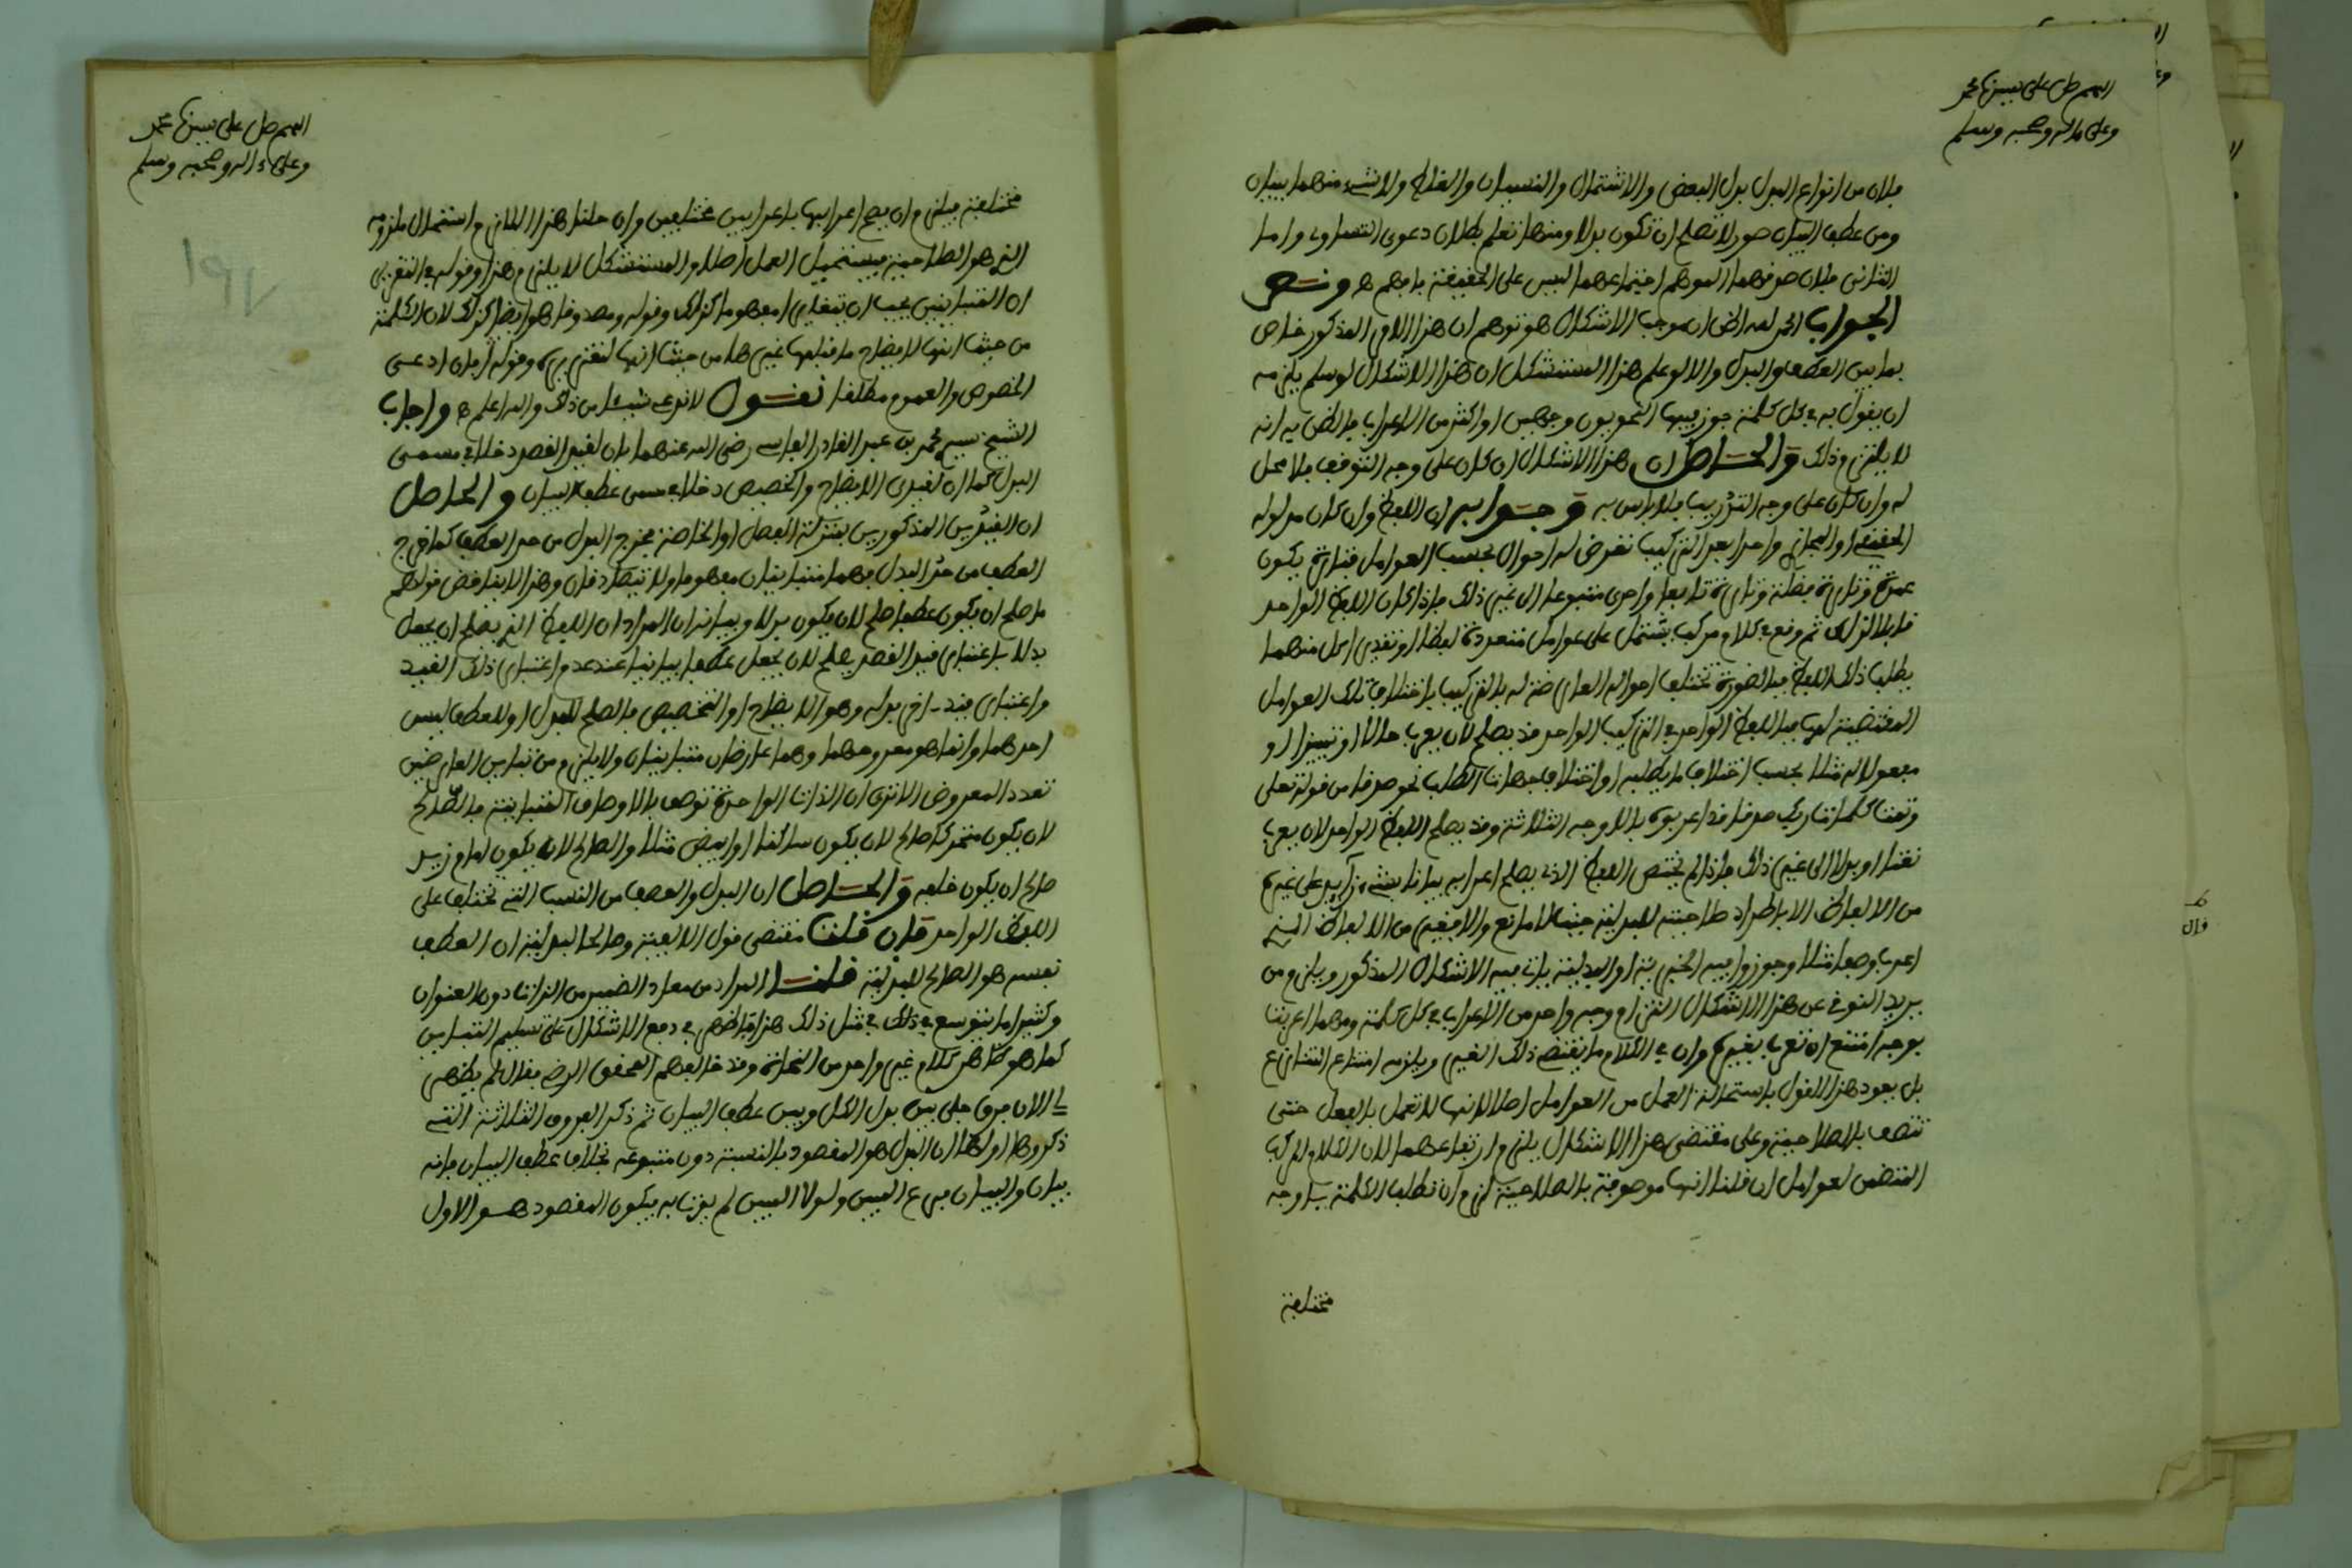 اللهم صل على نبينا محمد
وعلى ءاله وصحبه وسلم
فلان من انواع البدل بدل البعض والاشتمال والنسيان والغلط ولا شيء منهما ببيان
ومن عطف البيان صور لا تصلح ان تكون بدلا ومنها تعلم بطلان دعوى التساوي واما
الثاني فلان صدقهما الموهم اجتماعهما ليس على الحقيقة فافهم ه ونص
الجواب الحمد لله الحق ان موجب الاشكال هو توهم ان هذا اللازم المذكور خاص
بما بين العطف والبدل والا لو علم هذا المستشكل ان هذا الاشكال لو سلم يلزمه
ان يقول به في كل كلمة جوز فيها النحويون وجهين او اكثر من الاعراب فالظن به انه
لا يلتزم ذلك والحاصل ان هذا الاشكال ان كان على وجه التوقف فلا محل
له وان كان على وجه التدريب فلا باس به وجوابه ان اللفظ وان كان مدلوله
الحقيقي او المجازي واحدا بعد التركيب تعرض له احوال بحسب العوامل فتارة يكون
عمدة وتارة فضلة وتارة تابعا واخرى متبوعا الى غير ذلك فاذا كان اللفظ الواحد
قابلا لذلك ثم وقع في كلام مركب يشتمل على عوامل متعددة لفظا او تقديرا كل منهما
يطلب ذلك اللفظ فبالضرورة تختلف احواله العارضة له بالتركيب باختلاف تلك العوامل
المقتضية لها فاللفظ الواحد في التركيب الواحد قد يصلح لان يعرب حالا او تمييزا او
مفعولا له مثلا بحسب اختلاف ما يطلبه او اختلاف جهات الطلب نحو صدقا من قوله تعلى
وتمت كلمات ربك صدقا فقد اعربوه بالاوجه الثلاثة وقد يصلح اللفظ الواحد لان يعرب
نعتا او بدلا الى غير ذلك فاذا لم يختص اللفظ الذي يصلح اعرابه بيانا بشيء زايد على غيره
من الالفاظ الا باطراد صلاحيته للبدلية حيث لا مانع والا فغيره من الالفاظ التي
اعرب وصفا مثلا وجوزوا فيه الخبرية او البدلية ياتي فيه الاشكال المذكور ويلزم من
يريد التوقي عن هذا الاشكال التزام وجه واحد من الاعراب في كل كلمة ومهما اعربت
بوجه امتنع ان تعرب بغيره وان في الكلام ما يقتضي ذلك الغير ويلزمه امتناع التنازع
بل يعود هذا القول باستحالة العمل من العوامل اصلا لانها لا تعمل بالفعل حتى
تتصف بالصلاحية وعلى مقتضى هذا الاشكال يلزم ارتفاعهما لان الكلام المركب
المتضمن لعوامل ان قلنا انها موصوفة بالصلاحية لزم ان تطلب الكلمة باوجه
مختلفة
اللهم صل على نبينا محمد
وعلى ءاله وصحبه وسلم
مختلفة فيلزم ان يصح اعرابها باعرابين مختلفين وان حلنا هذا اللازم استحال ملزومه
الذي هو الصلاحية فيستحيل العمل اصلا والمستشكل لا يلتزم هذا وقوله في التقرير
ان المتباينين يجب ان يتغايرا مفهوما كذلك وقوله ومصدوقا هو ايضا كذلك لان الكلمة
من حيث انها لايضاح ما قبلها غيرها من حيث انها لتقريره وقوله فان ادعى
الخصوص والعموم مطلقا نقول لا ندعي شيئا من ذلك والله اعلم ه واجاب
الشيخ سيدي محمد بن عبد القادر الفاسي رضي الله عنهما بان لقيد القصد دخلا في مسمى
البدل كما ان لقيدي الايضاح والتخصيص دخلا في مسمى عطف البيان والحاصل
ان القيدين المذكورين بمنزلة الفصل او الخاصة يخرج البدل من حد العطف كما خرج
العطف من حد البدل فهما متباينان مفهوما ولا يتصادقان وهذا لا يناقض قولهم
ما صلح ان يكون عطفا صلح لان يكون بدلا وبيانه ان المراد ان اللفظ الذي يصلح ان يجعل
بدلا باعتبار قيد القصد يصلح لان يجعل عطفا بيانيا عند عدم اعتبار ذلك القيد
واعتبار قيد اخر بدله وهو الايضاح او التخصيص فالصالح للبدل او للعطف ليس
احدهما وانما هو معروضهما وهما عارضان متباينان ولا يلزم من تباين العارضين
تعدد المعروض الا ترى ان الذات الواحدة توصف بالاوصاف المتباينة فالصالح
لان يكون متحركا صالح لان يكون ساكنا او ابيض مثلا والصالح لان يكون امام زيد
صالح ان يكون خلفه والحاصل ان البدل والعطف من النسب التي تختلف على
اللفظ الواحد فان قلت مقتضى قول الالفية وصالحا لبدلية ان العطف
نفسه هو الصالح للبدلية قلنا المراد من معاد الضمير من الذات دون العنوان
وكثيرا ما يتوسع في ذلك في مثل ذلك هذا ما ظهر في دفع الاشكال على تسليم التباين
كما هو ظاهر كلام غير واحد من النحاة وقد خالفهم المحقق الرضي فقال لم يظهر
لي الان فرق جلي بين بدل الكل وبين عطف البيان ثم ذكر الفروق الثلاثة التي
ذكروها اولها ان البدل هو المقصود بالنسبة دون متبوعه بخلاف عطف البيان فانه
بيان والبيان فرع المبين ولولا المبين لم يوت به فيكون المقصود هو الاول